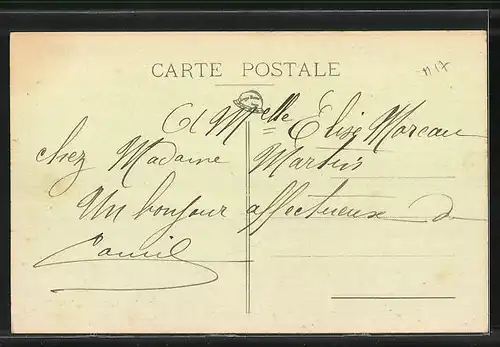 CARTE POSTALE
A Melle Elise Moreau
chez Madame Martin
Un bonjour affectueux d
Camil